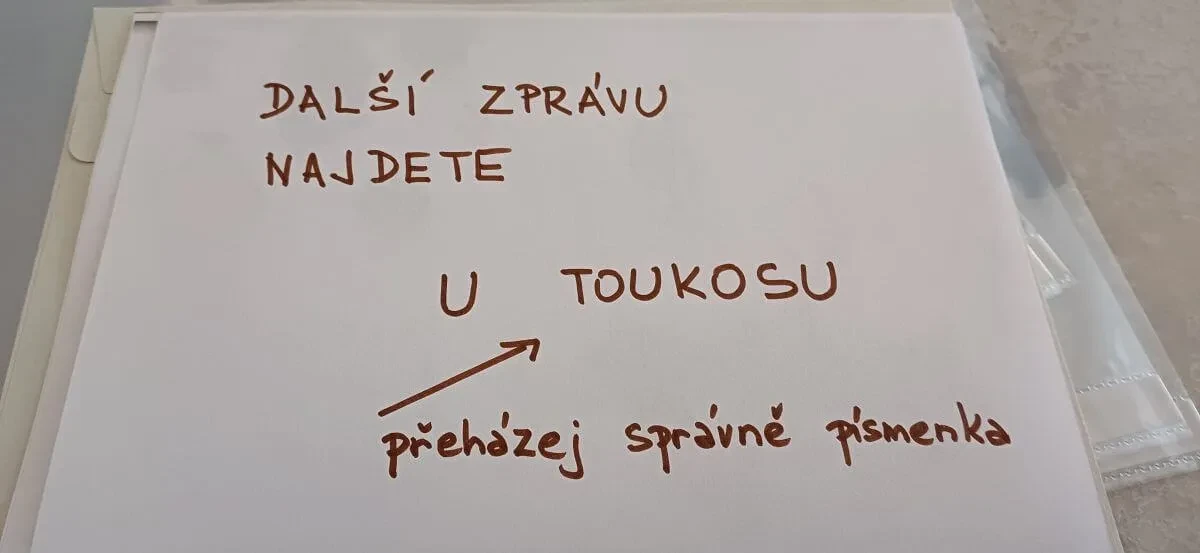 DALŠÍ ZPRÁVU
NAJDETE
U TOUKOSU
přeházej správně písmenka